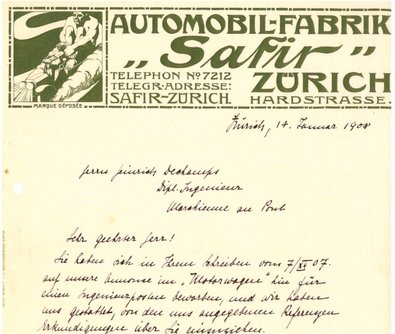 AUTOMOBIL-FABRIK
„Safir”
TELEPHON No 7212
TELEGR.-ADRESSE:
SAFIR-ZÜRICH.
ZÜRICH
HARDSTRASSE.
MARQUE DÉPOSÉE
Zürich, 14. Januar 1908
Herrn Heinrich Dechamps
Dipl. Ingenieur
Marchienne au Pont
Sehr geehrter Herr!
Sie haben sich in Ihrem Schreiben vom 7/XI 07.
auf unsere Annonce im „Motorwagen" hin für
einen Ingenieurposten beworben, und wir haben
uns gestattet, von den uns angegebenen Referenzen
Erkundigungen über Sie einzuziehen.